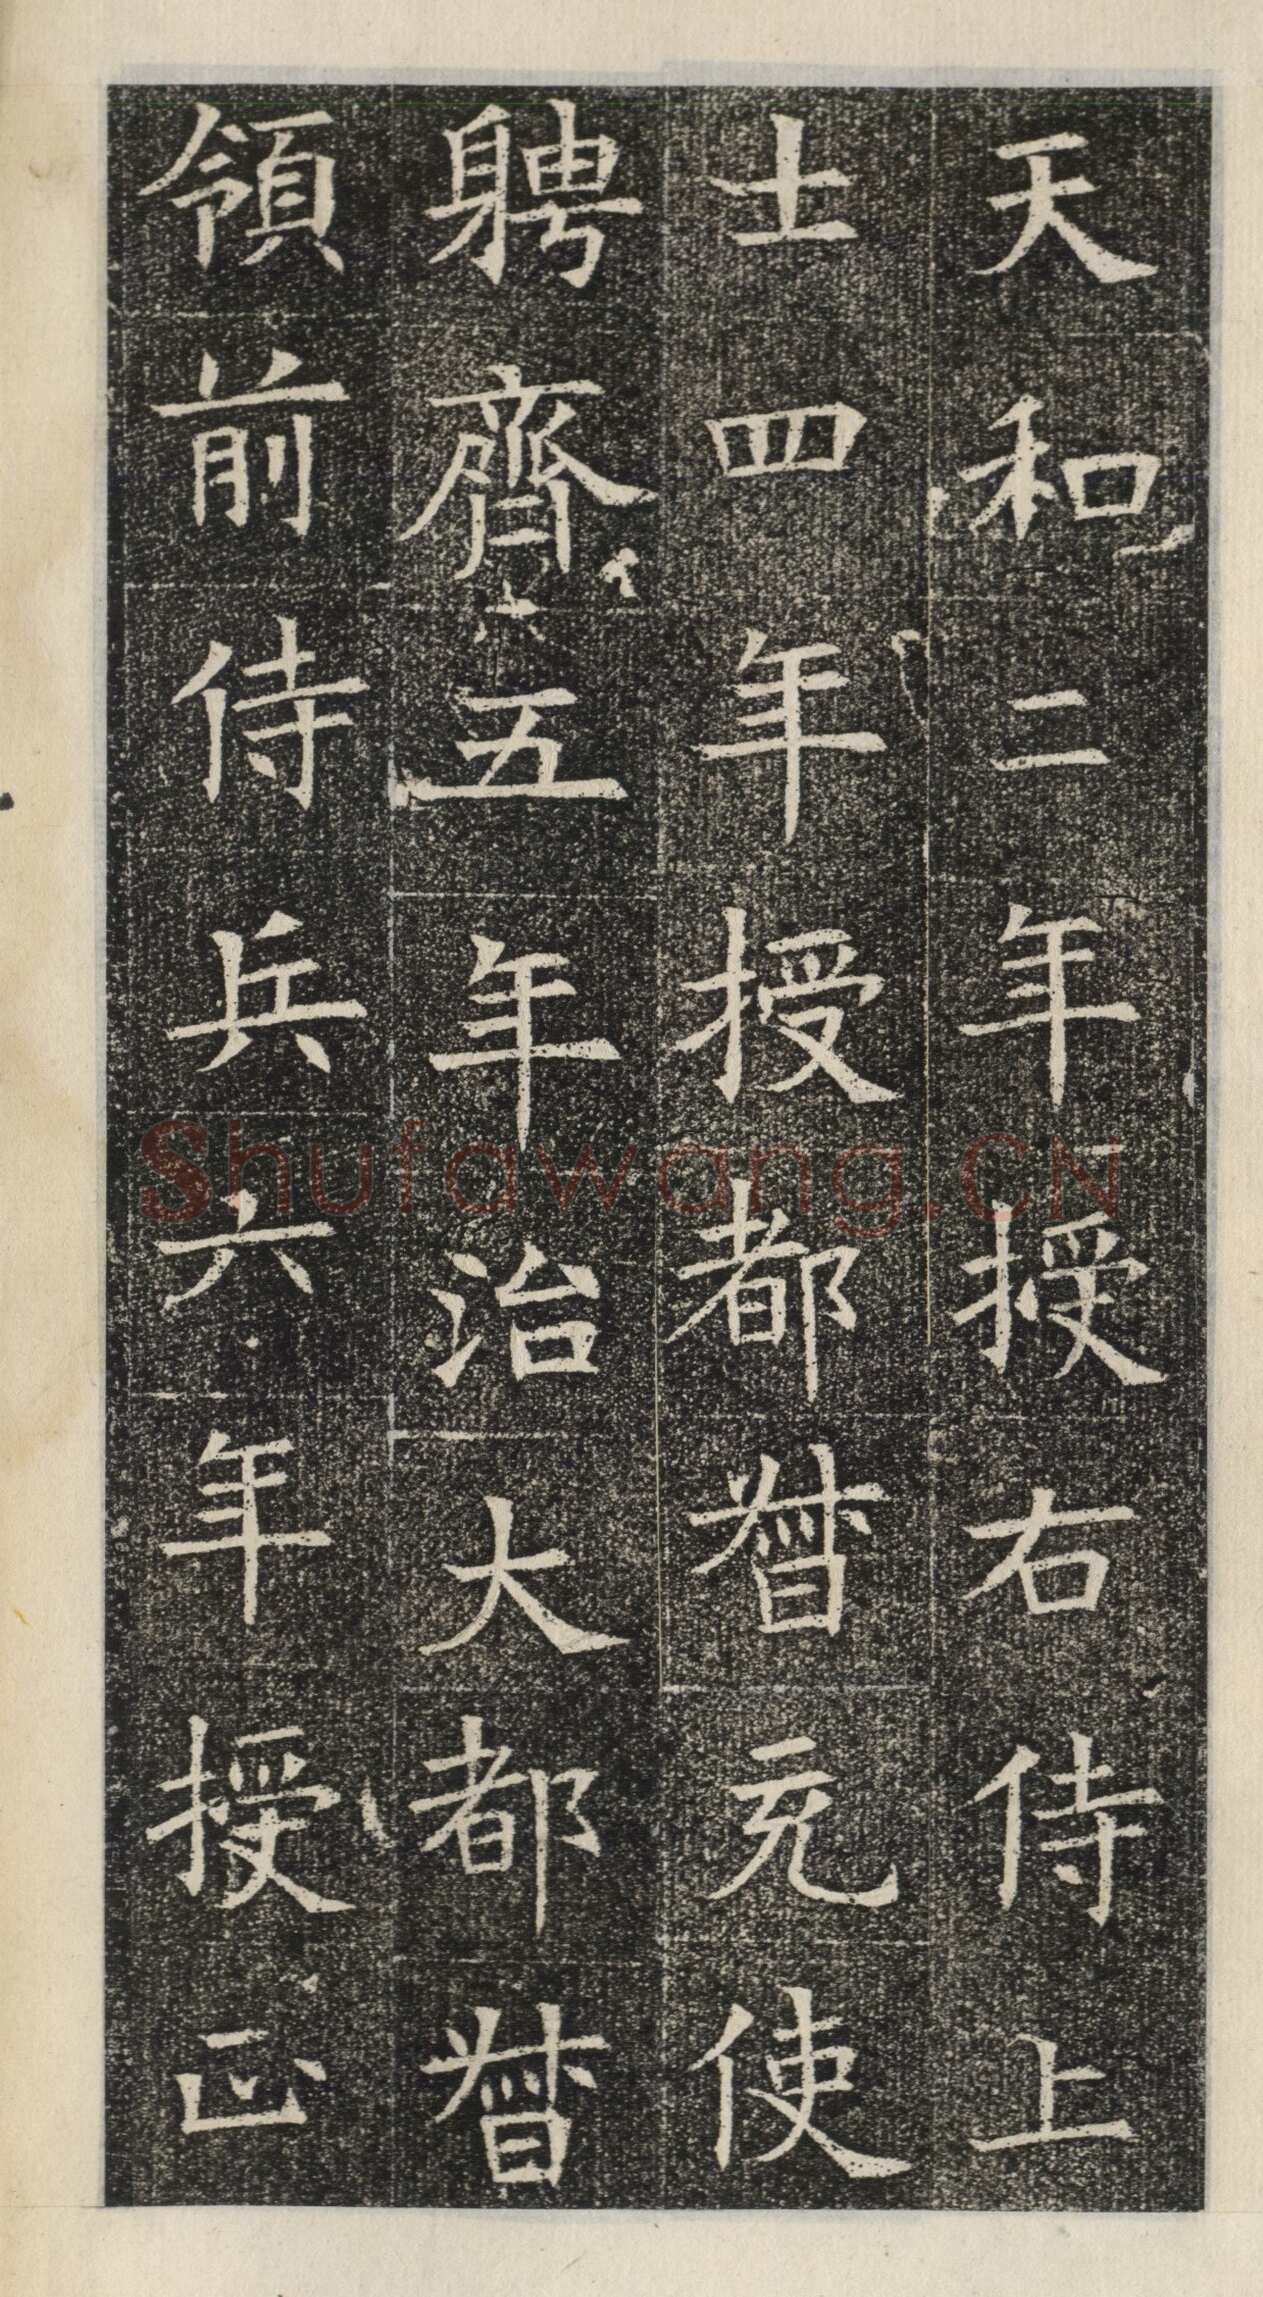 天和二年授右侍上
士四年授都督充使
聘齊五年治大都督
領前侍兵六年授正
Shufawang.CN